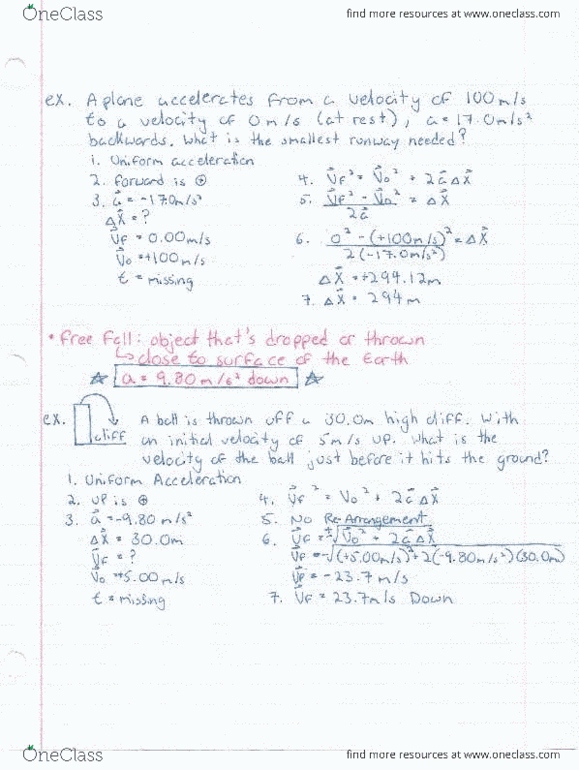 OneClass
find more resources at www.oneclass.com
ex. A plane accelerates from a velocity of 100m/s
to a velocity of 0m/s (at rest), a=17.0m/s²
backwards. What is the smallest runway needed?
1. Uniform acceleration
2. forward is ⊕
3. a⃗ = -17.0m/s²
ΔX⃗ = ?
V⃗f = 0.00m/s
V⃗o = +100m/s
t = missing
4. V⃗f² = V⃗o² + 2a⃗ΔX⃗
5. V⃗f² - V⃗o² = ΔX⃗
2a⃗
6. 0² - (+100m/s)² = ΔX⃗
2(-17.0m/s²)
ΔX⃗ = +294.12m
7. ΔX⃗ = 294m
• Free Fall: object that's dropped or thrown
↳ close to surface of the Earth
☆ a = 9.80m/s² down ☆
ex. cliff A ball is thrown off a 30.0m high cliff. With
an initial velocity of 5m/s up. What is the
velocity of the ball just before it hits the ground?
1. Uniform Acceleration
2. UP is ⊕
3. a⃗ = -9.80 m/s²
ΔX⃗ = 30.0m
V⃗f = ?
V⃗o = +5.00m/s
t = missing
4. V⃗f² = Vo² + 2a⃗ΔX⃗
5. No Re-Arrangement
6. V⃗f = ±√V⃗o² + 2a⃗ΔX⃗
V⃗f = -√(+5.00m/s)² + 2(-9.80m/s²)(30.0m)
V⃗f = -23.7m/s
7. V⃗f = 23.7m/s Down
OneClass
find more resources at www.oneclass.com